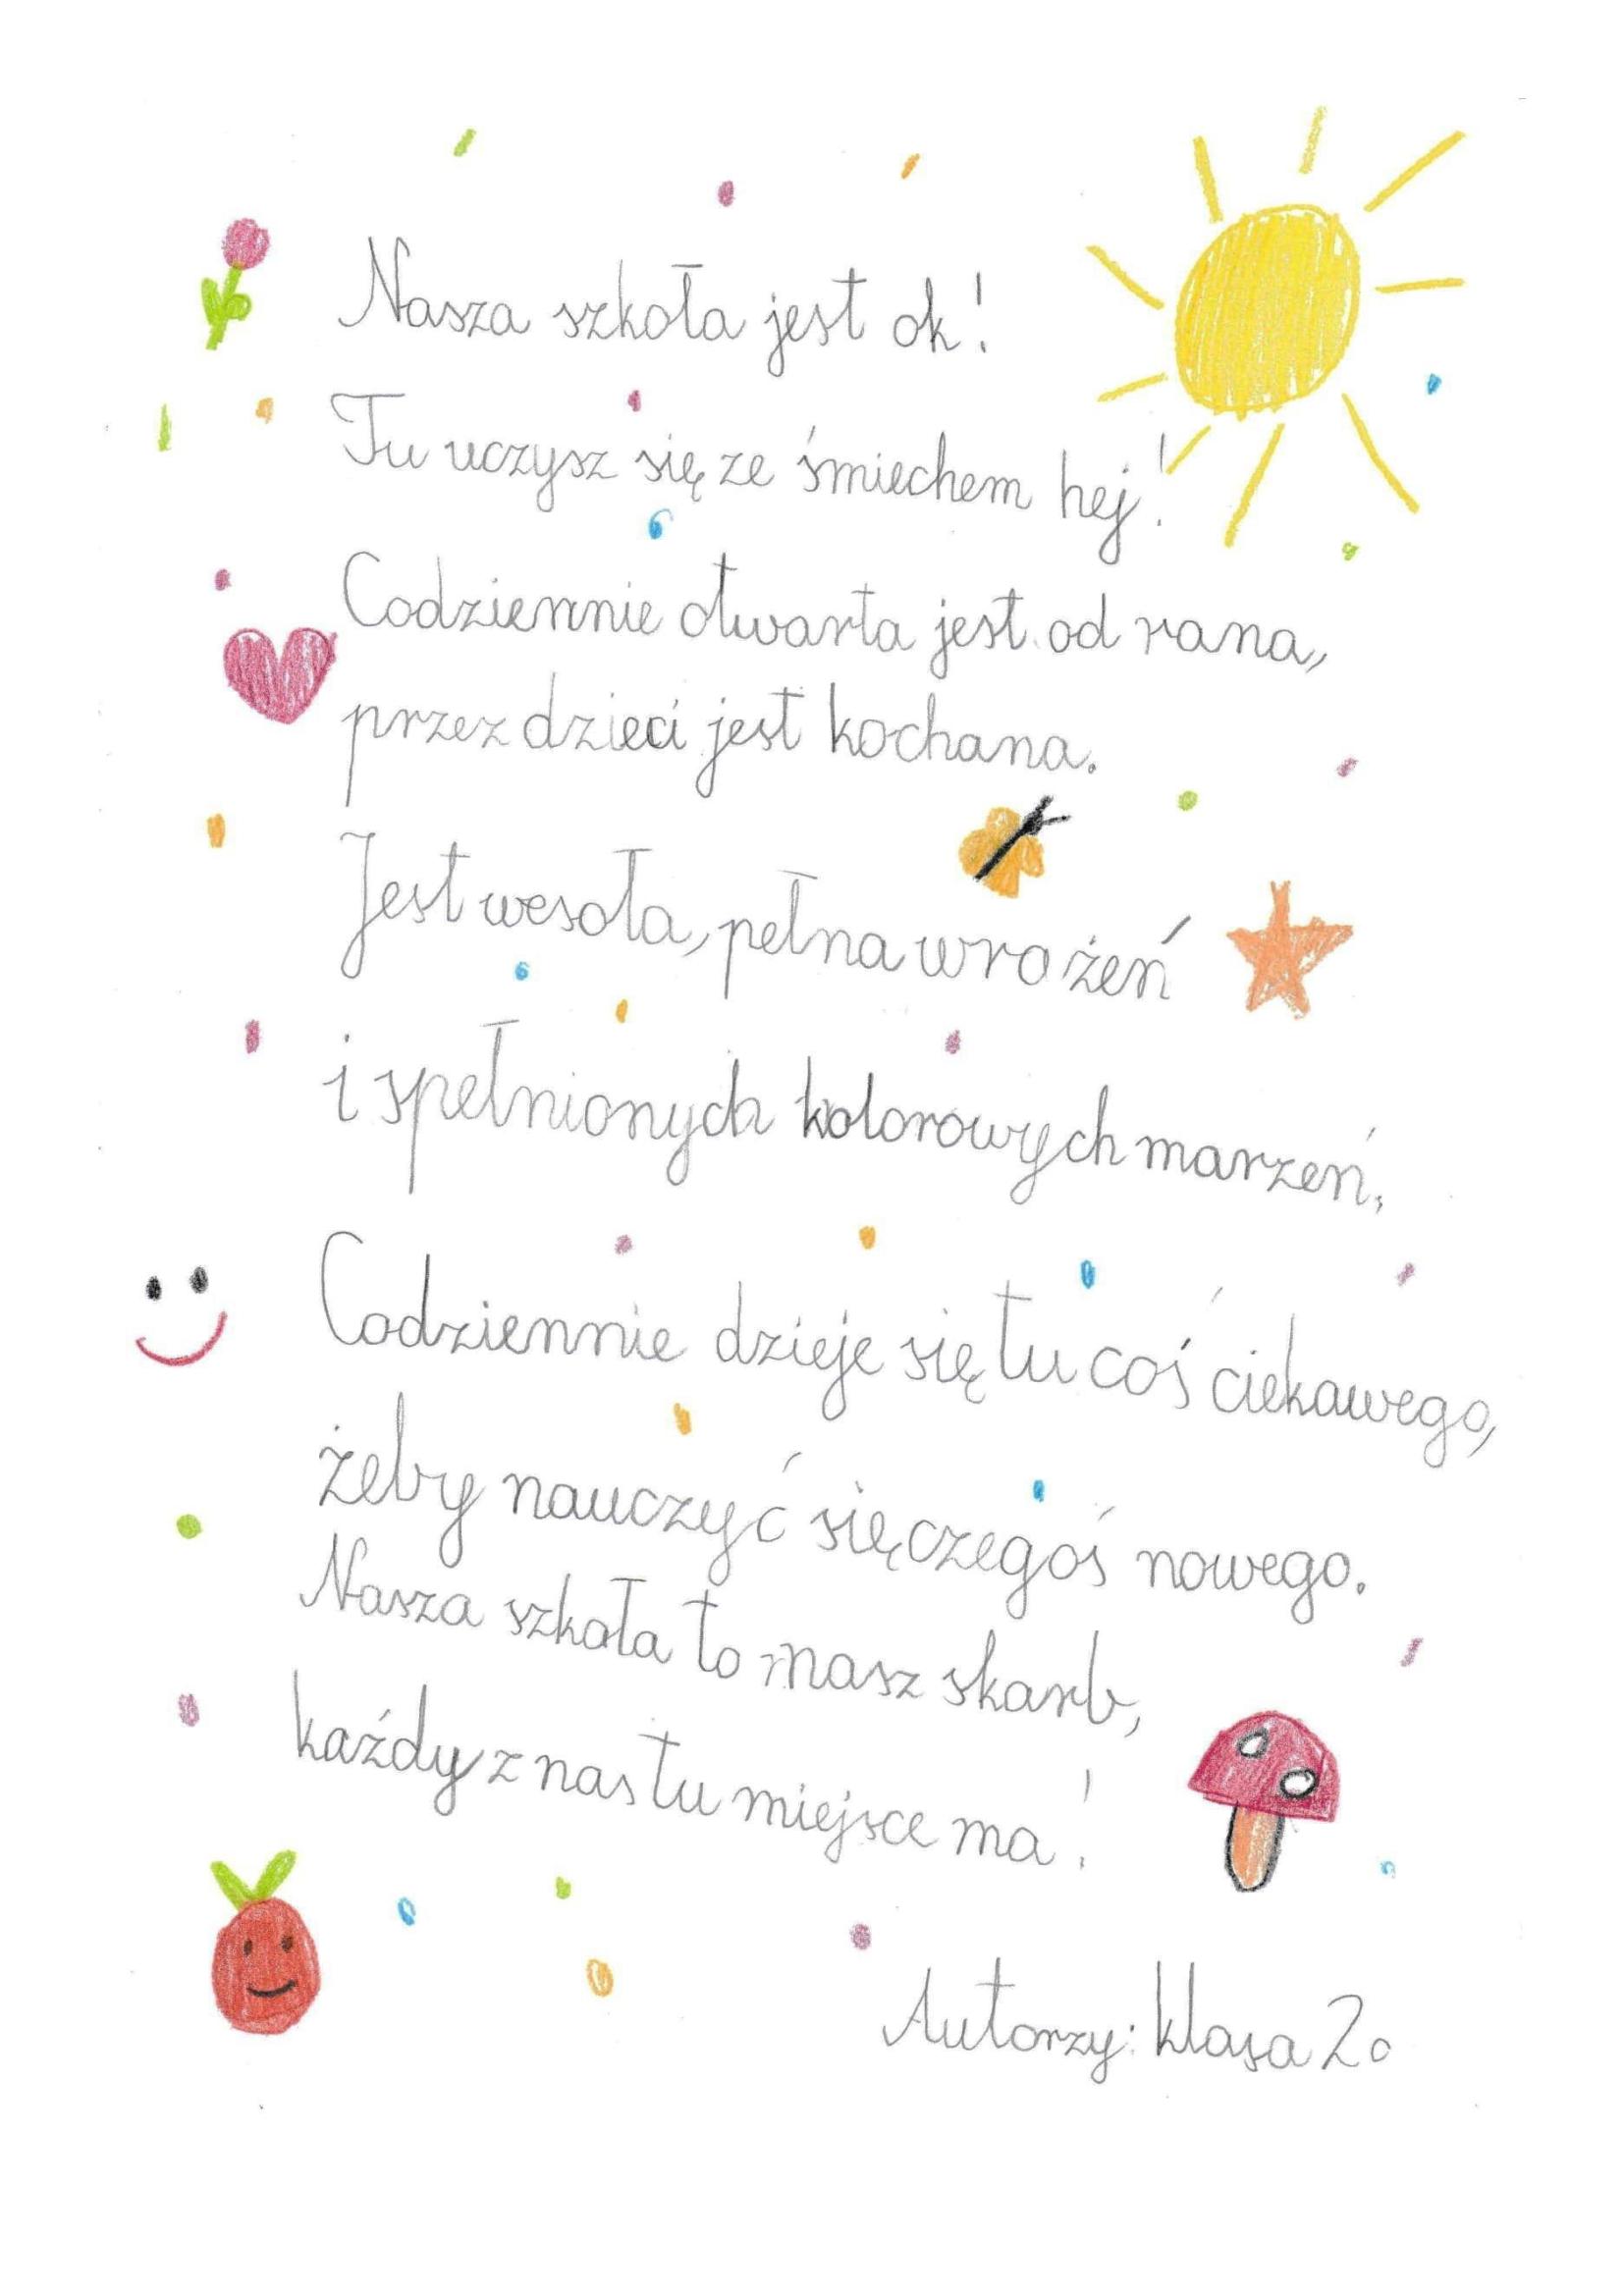 Nasza szkoła jest ok!
Tu uczysz się ze śmiechem hej!
Codziennie otwarta jest od rana,
przez dzieci jest kochana.
Jest wesoła, pełna wrażeń
i spełnionych kolorowych marzeń.
Codziennie dzieje się tu coś ciekawego,
żeby nauczyć się czegoś nowego.
Nasza szkoła to nasz skarb,
każdy z nas tu miejsce ma!
Autorzy: klasa 2c